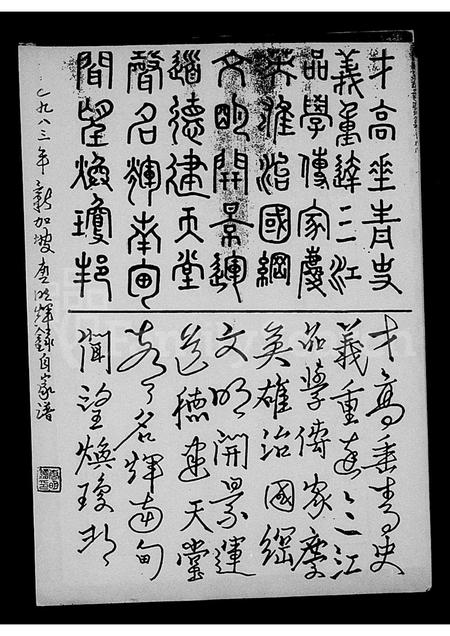 才高垂青史
義重達三江
品學傳家慶
英雄治國綱
文明開景運
道德建天堂
聲名輝南甸
聞望煥瓊邦
才高垂青史
義重達三江
品學傳家慶
英雄治國綱
文明開景運
道德建天堂
聲名輝南甸
聞望煥瓊邦
一九八三年新加坡 輝錄自家譜